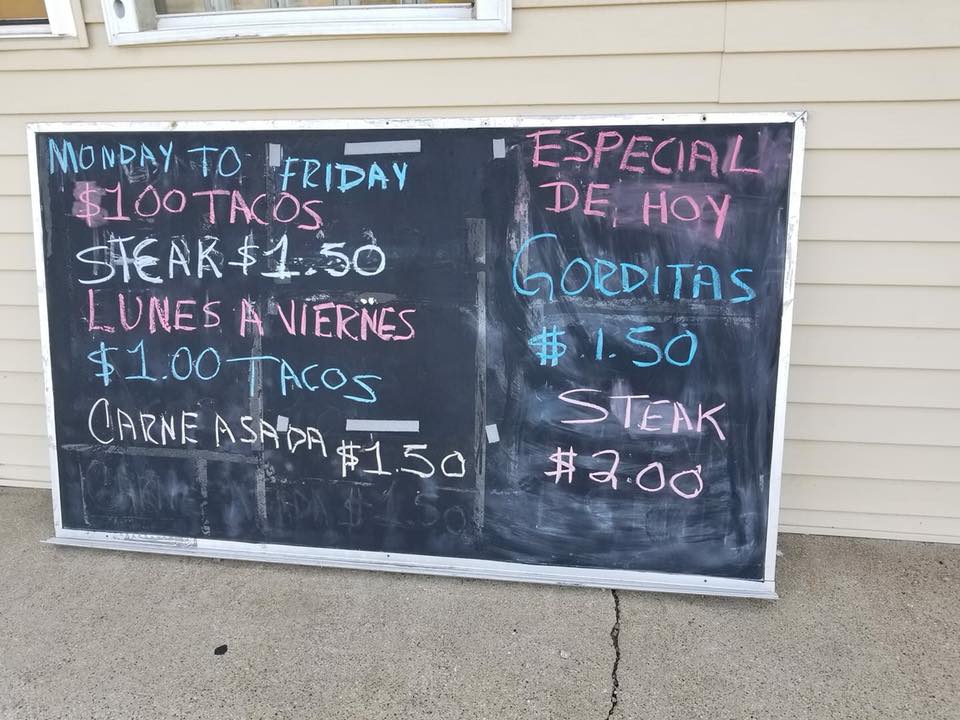 MONDAY TO FRIDAY
$1.00 TACOS
STEAK $1.50
LUNES A VIERNES
$1.00 TACOS
CARNE ASADA $1.50
CARNE ASADA $1.50
ESPECIAL
DE HOY
GORDITAS
$1.50
STEAK
$2.00